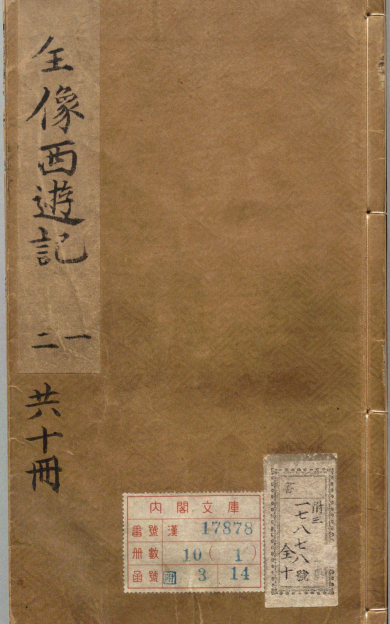 全像西遊記
一
二
共十冊
内閣文庫
番號 漢 17878
冊數 10(1)
函號 3 14
一七八七八號
全十